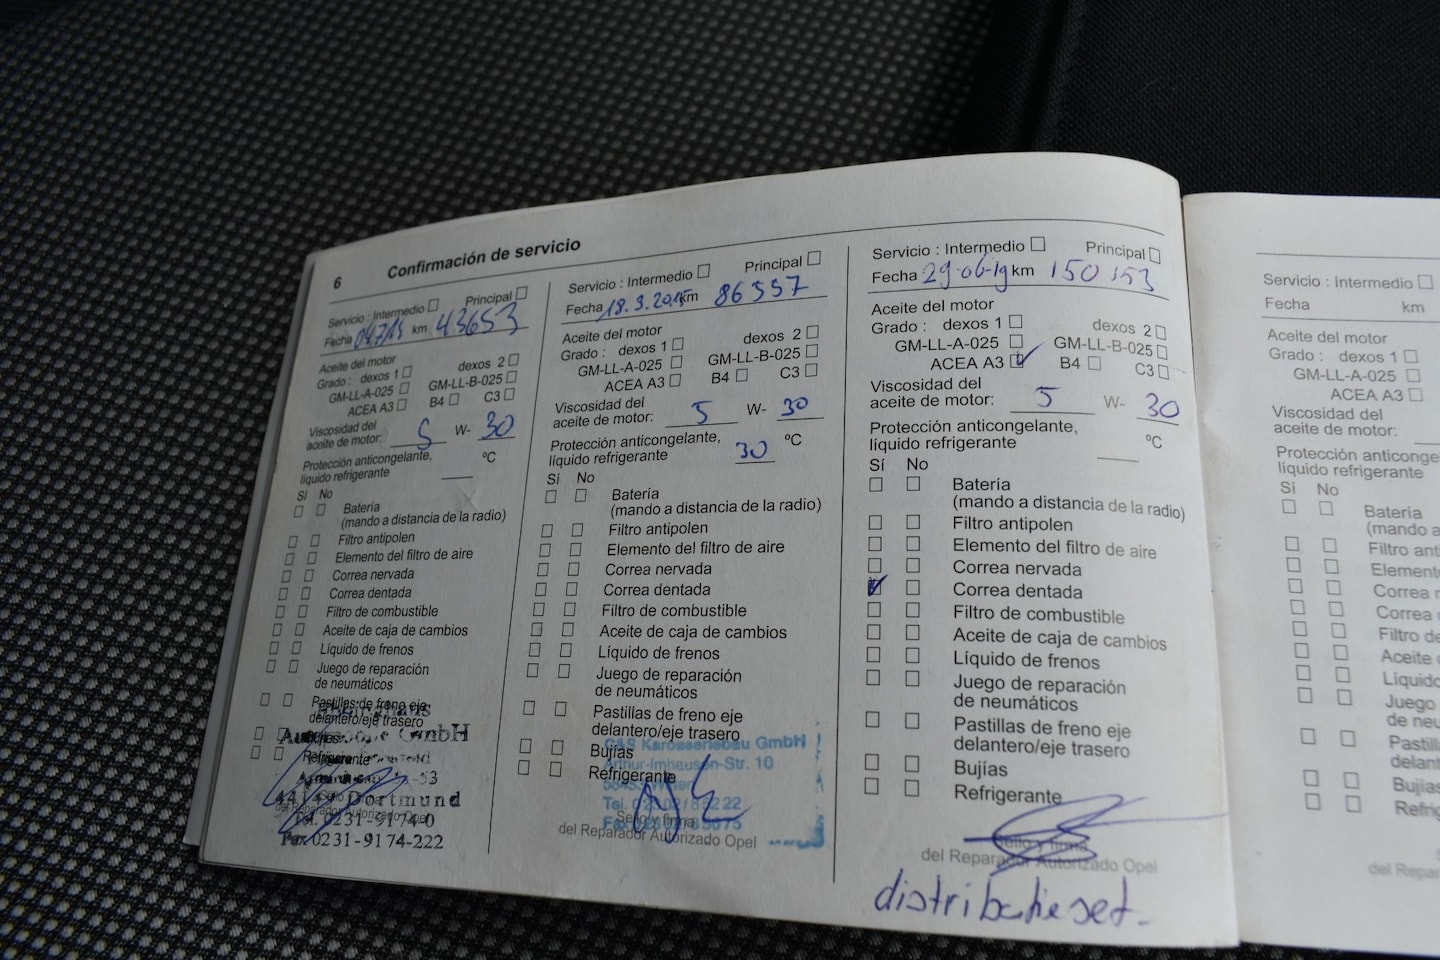 6
Confirmación de servicio
Servicio : Intermedio Principal
Fecha km 43653
Aceite del motor
Grado : dexos 1 dexos 2
GM-LL-A-025 GM-LL-B-025
ACEA A3 B4 C3
Viscosidad del
aceite de motor: 5 W- 30
Protección anticongelante, ºC
líquido refrigerante
Sí No
Batería
(mando a distancia de la radio)
Filtro antipolen
Elemento del filtro de aire
Correa nervada
Correa dentada
Filtro de combustible
Aceite de caja de cambios
Líquido de frenos
Juego de reparación
de neumáticos
Pastillas de freno eje
delantero/eje trasero
GmbH
Bujías
Refrigerante
Dortmund
Tel. 0231-9174-0
Fax 0231-9174-222
Servicio : Intermedio Principal
Fecha 18.3.2015 km 86557
Aceite del motor
Grado : dexos 1 dexos 2
GM-LL-A-025 GM-LL-B-025
ACEA A3 B4 C3
Viscosidad del
aceite de motor: 5 W- 30
Protección anticongelante,
líquido refrigerante 30 ºC
Sí No
Batería
(mando a distancia de la radio)
Filtro antipolen
Elemento del filtro de aire
Correa nervada
Correa dentada
Filtro de combustible
Aceite de caja de cambios
Líquido de frenos
Juego de reparación
de neumáticos
Pastillas de freno eje
delantero/eje trasero
C&S Karosseriebau GmbH
Bujías
Arthur-Imhausen-Str. 10
Refrigerante
Sello y firma
del Reparador Autorizado Opel
Servicio : Intermedio Principal
Fecha 29-06-19 km 150153
Aceite del motor
Grado : dexos 1 dexos 2
GM-LL-A-025 GM-LL-B-025
ACEA A3 B4 C3
Viscosidad del
aceite de motor: 5 W- 30
Protección anticongelante, ºC
líquido refrigerante
Sí No
Batería
(mando a distancia de la radio)
Filtro antipolen
Elemento del filtro de aire
Correa nervada
Correa dentada
Filtro de combustible
Aceite de caja de cambios
Líquido de frenos
Juego de reparación
de neumáticos
Pastillas de freno eje
delantero/eje trasero
Bujías
Refrigerante
Sello y firma
del Reparador Autorizado Opel
distributieset.
Servicio : Intermedio
Fecha km
Aceite del motor
Grado : dexos 1
GM-LL-A-025
ACEA A3
Viscosidad del
aceite de motor:
Protección anticonge
líquido refrigerante
Sí No
Batería
(mando a
Filtro anti
Elemento
Correa n
Correa
Filtro d
Aceite
Líquid
Juego
de neu
Pastill
delant
Bujías
Refrig
del Repara